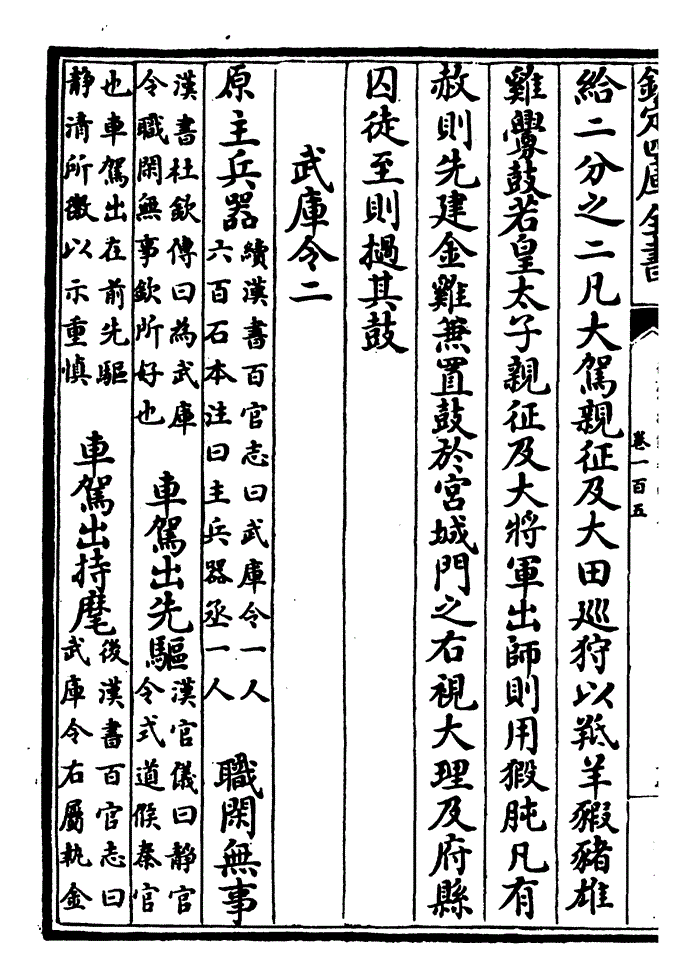 欽定四庫全書
卷一百五
給二分之二凡大駕親征及大田巡狩以羝羊猳豬雄
雞釁鼓若皇太子親征及大將軍出師則用猳肫凡有
赦則先建金雞兼置鼓於宮城門之右視大理及府縣
囚徒至則撾其鼓
武庫令二
原主兵器
續漢書百官志曰武庫令一人
六百石本注曰主兵器丞一人
職閑無事
漢書杜欽傳曰為武庫
令職閑無事欽所好也
車駕出先驅
漢官儀曰静官
令式道候秦官
也車駕出在前先驅
静清所徼以示重慎
車駕出持麾
後漢書百官志曰
武庫令右屬執金